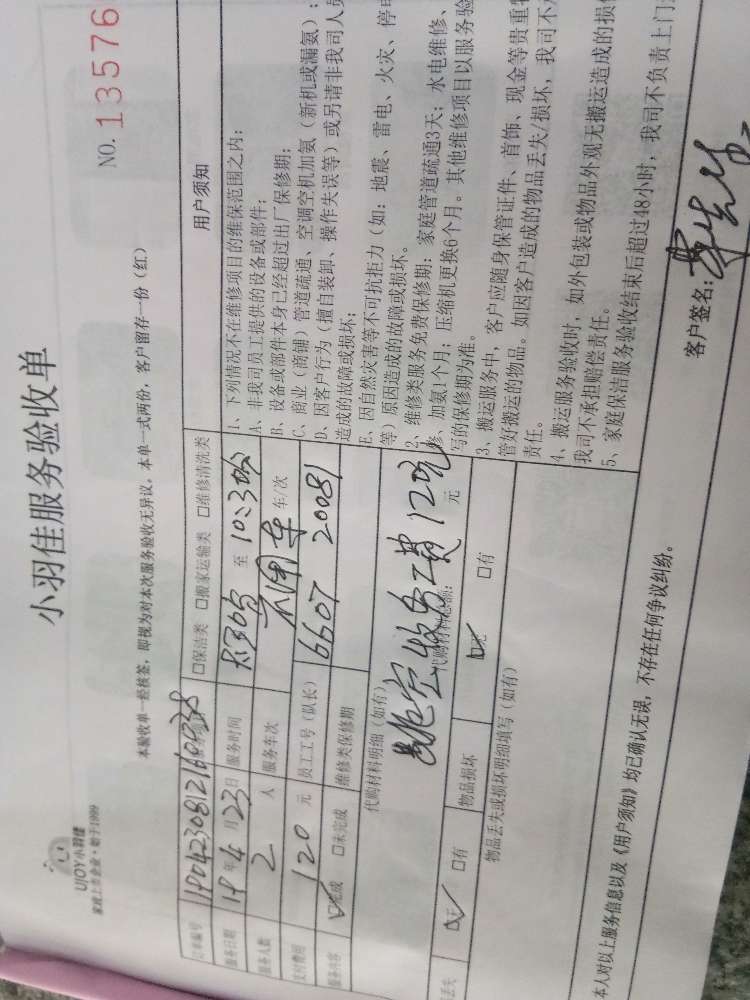 UJOY小羽佳
家政上市企业·始于1999
小羽佳服务验收单
NO. 13576
本验收单一经核签，即视为对本次服务验收无异议。本单一式两份，客户留存一份（红）
订单编号
□保洁类 □搬家运输类 □维修清洗类
服务日期 19年4月23日 服务时间 至
服务人数 2 人 服务车次 车/次
支付费用 120 元 员工工号（队长） 6607 20081
服务内容 ☑完成 □未完成 维修类保修期
代购材料明细（如有）
代购材料总额: 元
丢失 ☑无 □有 物品损坏 ☑无 □有
物品丢失或损坏明细填写（如有）
用户须知
1、下列情况不在维修项目的维保范围之内：
A、非我司员工提供的设备或部件；
B、设备或部件本身已经超过出厂保修期；
C、商业（商铺）管道疏通、空调空机加氨（新机或漏氨）；
D、因客户行为（擅自装卸、操作失误等）或另请非我司人员
造成的故障或损坏；
E、因自然灾害等不可抗拒力（如：地震、雷电、火灾、停电
等）原因造成的故障或损坏。
2、维修类服务免费保修期：家庭管道疏通3天；水电维修、
修、加氨1个月；压缩机更换6个月。其他维修项目以服务验
写的保修期为准。
3、搬运服务中，客户应随身保管证件、首饰、现金等贵重物
管好搬运的物品。如因客户造成的物品丢失/损坏，我司不承
责任。
4、搬运服务验收时，如外包装或物品外观无搬运造成的损
我司不承担赔偿责任。
5、家庭保洁服务验收结束后超过48小时，我司不负责上门
本人对以上服务信息以及《用户须知》均已确认无误，不存在任何争议纠纷。
客户签名：